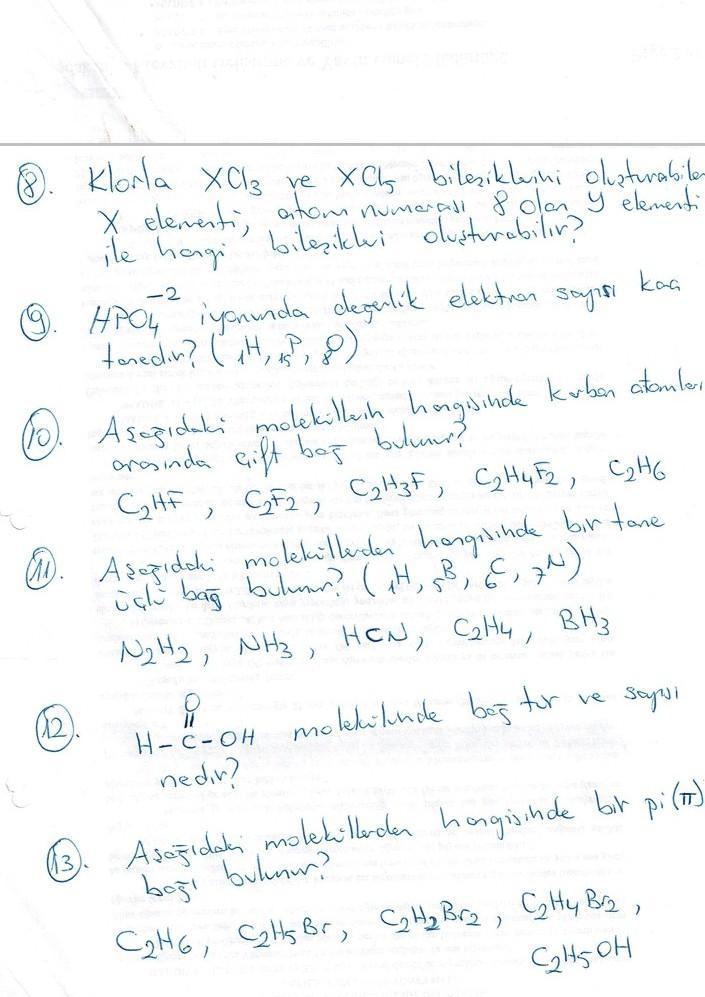 8. Klorla XCl3 ve XCl5 bileşiklerini oluşturabilen
X elementi, atom numarası 8 olan Y elementi
ile hangi bileşikleri oluşturabilir?
9. HPO4⁻² iyonunda değerlik elektron sayısı kaç
tanedir? (₁H, ₁₅P, ₈O)
10. Aşağıdaki moleküllerin hangisinde karbon atomları
arasında çift bağ bulunur?
C2HF, C2F2, C2H3F, C2H4F2, C2H6
11. Aşağıdaki moleküllerden hangisinde bir tane
üçlü bağ bulunur? (₁H, ₅B, ₆C, ₇N)
N2H2, NH3, HCN, C2H4, BH3
12.
O
||
H-C-OH molekülünde bağ tür ve sayısı
nedir?
13. Aşağıdaki moleküllerden hangisinde bir pi (π)
bağı bulunur?
C2H6, C2H5Br, C2H2Br2, C2H4Br2,
C2H5OH